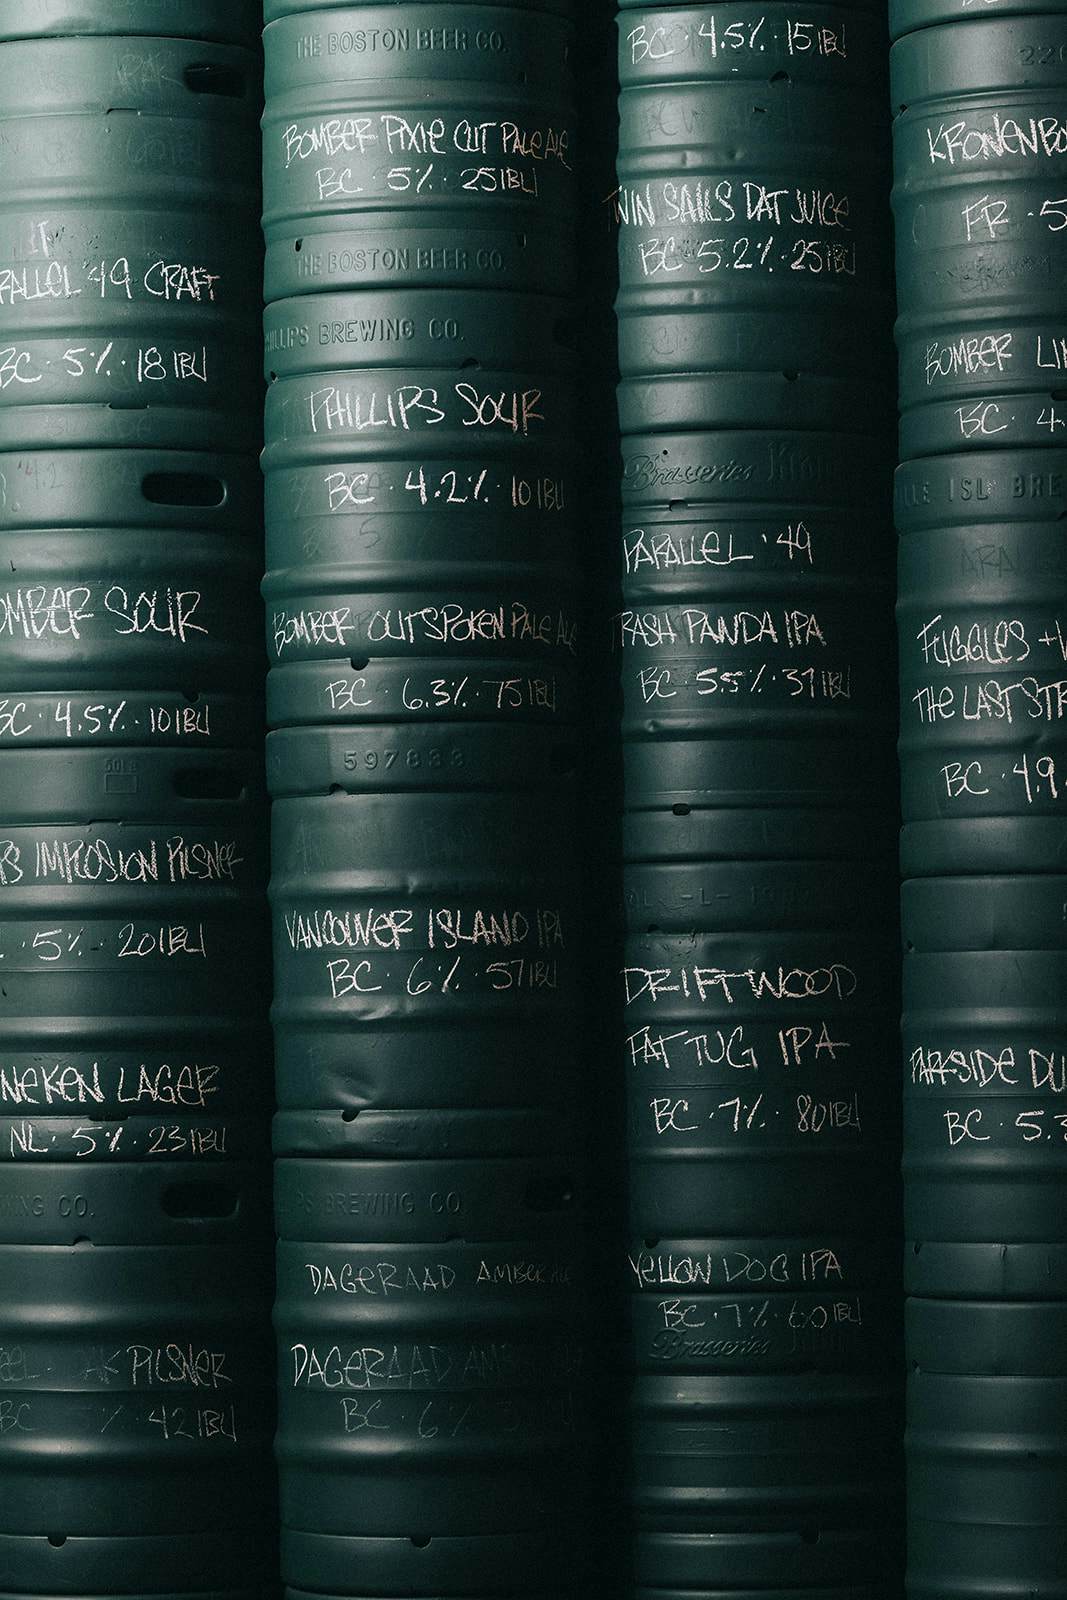 RALLEL '49 CRAFT
BC · 5% · 18 IBU
OMBER SOUR
BC · 4.5% · 10 IBU
50L
PS IMPLOSION PILSNER
· 5% · 20 IBU
NEKEN LAGER
NL · 5% · 23 IBU
WING CO.
PILSNER
BC % · 42 IBU
THE BOSTON BEER CO.
BOMBER PIXIE CUT PALE ALE
BC · 5% · 25 IBU
THE BOSTON BEER CO.
PHILLIPS BREWING CO.
PHILLIPS SOUR
BC · 4.2% · 10 IBU
BOMBER OUTSPOKEN PALE ALE
BC · 6.3% · 75 IBU
597833
VANCOUVER ISLAND IPA
BC · 6% · 57 IBU
PS BREWING CO.
DAGERAAD AMBER ALE
DAGERAAD AM
BC · 6%
BC · 4.5% · 15 IBU
TWIN SAILS DAT JUICE
BC · 5.2% · 25 IBU
Brasseries Kro
PARALLEL '49
TRASH PANDA IPA
BC · 5.5% · 37 IBU
DRIFTWOOD
FAT TUG IPA
BC · 7% · 80 IBU
YELLOW DOG IPA
BC · 7% · 60 IBU
Brasseries
220
KRONENBO
FR · 5
BOMBER LIM
BC · 4.
LLE ISL BRE
FUGGLES + W
THE LAST STR
BC · 4.9
PARKSIDE DU
BC · 5.3